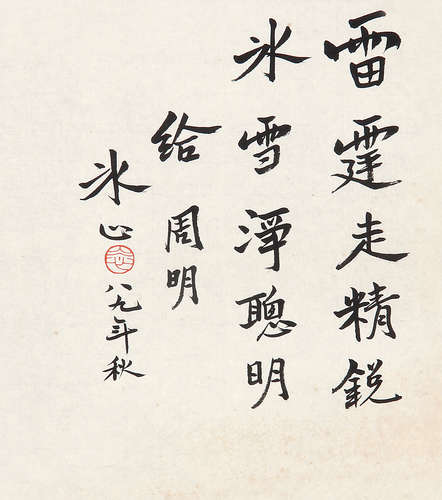 雷霆走精鋭
冰雪淨聰明
给周明
冰心
八九年秋